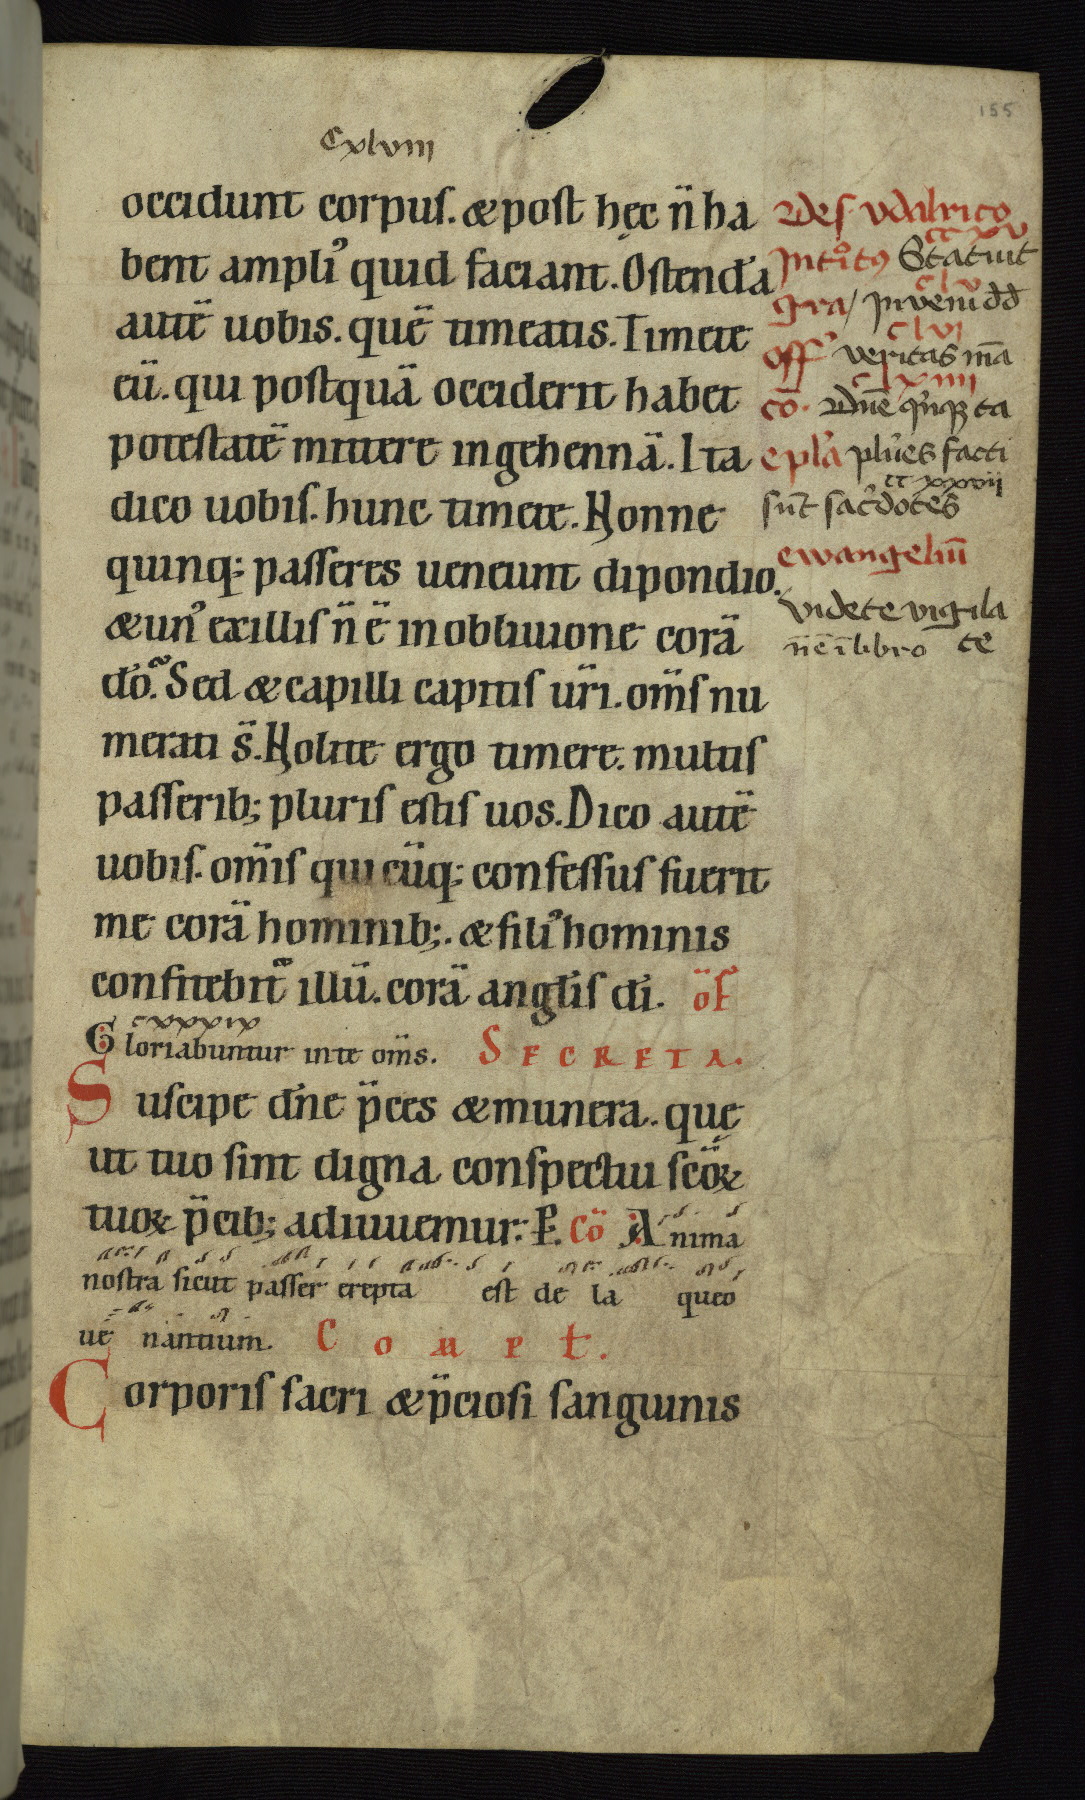 155
Cxlviii
occidunt corpus. & post hęc n̄ ha
bent ampli᾽ quid faciant. Ostendā
autē uobis. quē timeatis. Timete
eū. qui postquā occiderit habet
potestatē mittere in gehennā. Ita
dico uobis. hunc timete. Nonne
quinq; passeres ueneunt dipondio.
& un᾽ ex illis n̄ ē in obliuione corā
dō. Sed & capilli capitis ūri. om̄s nu
merati s̄. Nolite ergo timere. multis
passerib; pluris estis uos. Dico autē
uobis. om̄is quicūq; confessus fuerit
me corā hominib;. & fili᾽ hominis
confitebit᾽ illū. corā angl̄is dī. of̄
cxxxix
Gloriabuntur in te om̄s. SECRETA.
Suscipe dn̄e p̄ces & munera. quę
ut tuo sint digna conspectui scōꝝ
tuoꝝ p̄cib; adiuuemur. P. cō Anima
nostra sicut passer erepta est de la queo
uē nantium. Compt.
Corporis sacri & p̄ciosi sanguinis
De s. vdalrico
cc xv
Introit᾽ Statuit
clv
Gra/ Inveni dd̄
clvi
off᾽ veritas m̄a
clxiiii
cō. Dn̄e q̄nq ta
epl̄a plures facti
cc xxxvii
sūt sac᾽dotes
ewangeliū
videte vigila
te
n̄ ē ī libro